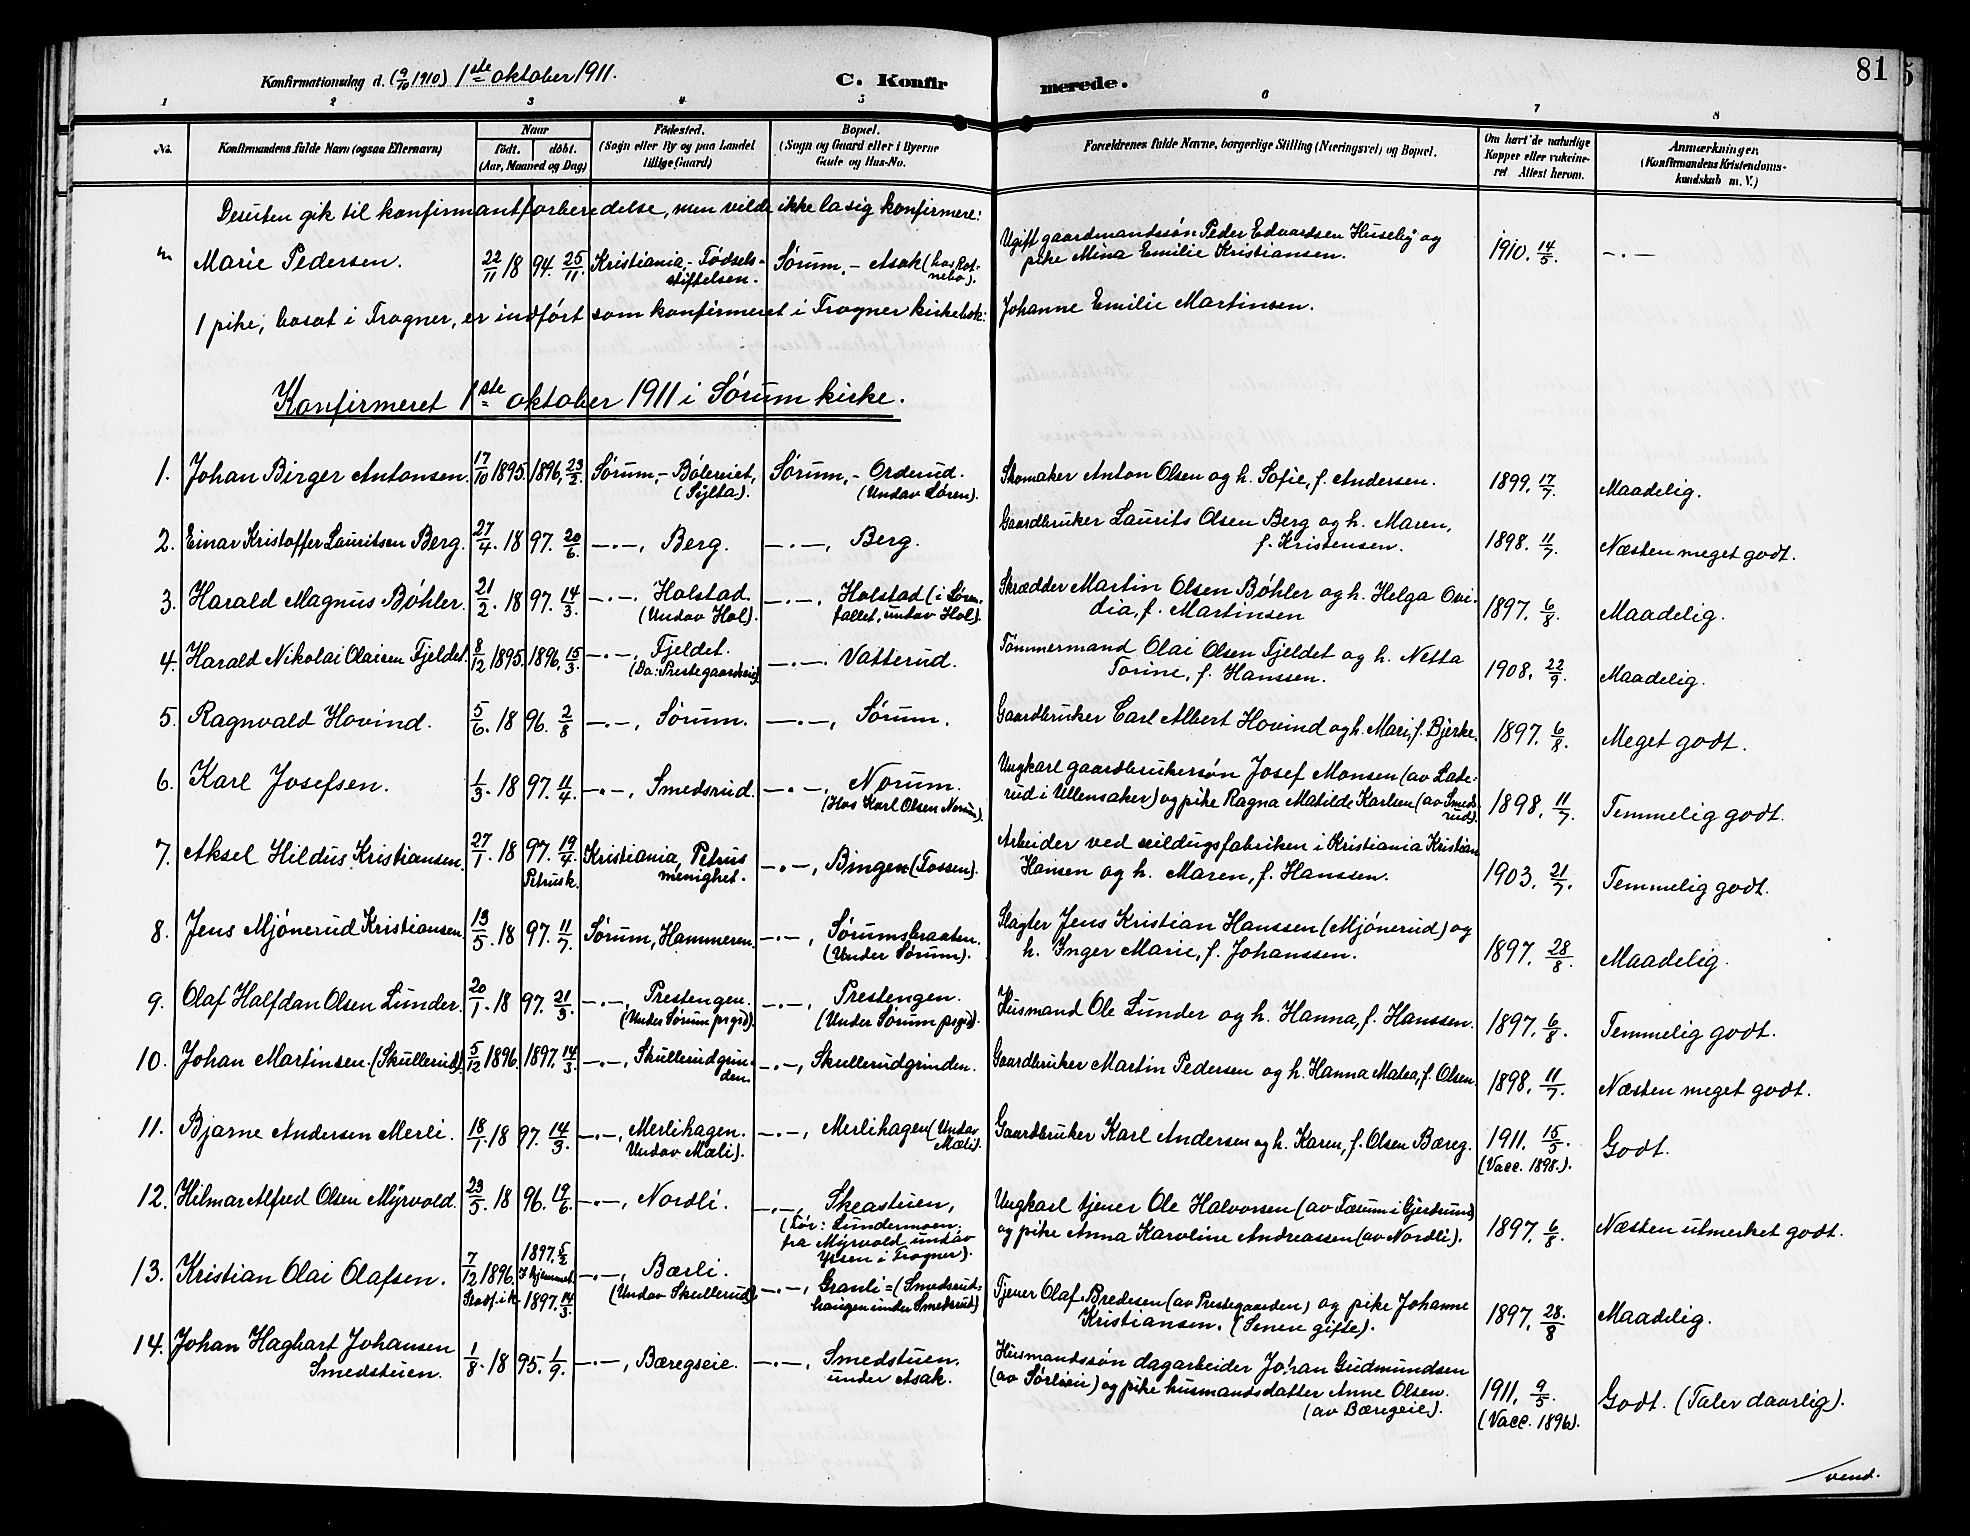 81
Konfirmationsdag d. (9/10 1910) 1ste oktober 1911.
C. Konfirmerede.
1 2 3 4 5 6 7 8
No. Konfirmandens fulde Navn (ogsaa Efternavn) Naar født. døbt. (Aar, Maaned og Dag) Fødested. (Sogn eller By og paa Landet tillige Gaard) Bopæl. (Sogn og Gaard eller i Byerne Gade og Hus-No. Forældrenes fulde Navne, borgerlige Stilling (Næringsvei) og Bopæl. Om havt de naturlige Kopper eller vakcineret Attest herom. Anmærkninger. (Konfirmandens Kristendomskundskab m. V.)
Desuten gik til konfirmantforberedelse, men vilde ikke la sig konfirmere:
Marie Pedersen. 22/11 18 94. 25/11. Kristiania - Fødselsstiftelsen. Sørum, - Asak (hos Rotnebo). Ugift gaardmandssøn Peder Edvardsen Huseby og pike Mina Emilie Kristiansen. 1910. 14/5. -·-.
1 pike, bosat i Frogner, er indført som konfirmeret i Frogner kirkebok: Johanne Emilie Martinsen.
Konfirmeret 1ste oktober 1911 i Sørum kirke.
1. Johan Birger Antonsen. 17/10 1895. 1896, 23/2. Sørum, - Bølereiet, (Sylta). Sørum, - Orderud. (Undav Søren). Skomaker Anton Olsen og h. Sofie, f. Andersen. 1899. 17/7. Maadelig.
2. Einar Kristoffer Lauritsen Berg. 27/4. 18 97. 20/6. -·-, Berg. -·-, Berg. Gaardbruker Laurits Olsen Berg og h. Maren, f. Kristensen. 1898. 11/7. Næsten meget godt.
3. Harald Magnus Bøhler. 21/2. 18 97. 14/3. -·-, Holstad. (Undav Hol). -·-, Holstad (i Sørenfallet, undav Hol). Skrædder Martin Olsen Bøhler og h. Helga Ovidia, f. Martinsen 1897. 6/8. Maadelig.
4. Harald Nikolai Olaisen Fjeldet. 8/12 1895. 1896, 15/3. -·-, Fjeldet. (Da: Prestegaardseie). -·-. Vatterud. Tømmermand Olai Olsen Fjeldet og h. Netta Torine, f. Hanssen. 1908. 22/9. Maadelig.
5. Ragnvald Hovind. 5/6. 18 96. 2/8 -·-, Sørum. -·-, Sørum. Gaardbruker Carl Albert Hovind og h. Mari, f. Bjerke. 1897. 6/8. Meget godt.
6. Karl Josefsen. 1/3. 18 97. 11/4. -·-, Smedsrud. -·-, Norum. (Hos Karl Olsen Norum). Ungkarl gaardbrukersøn Josef Monsen (av Laderud i Ullensaker) og pike Ragna Matilde Karlsen (av Smedsrud). 1898. 11/7. Temmelig godt.
7. Aksel Hildus Kristiansen. 27/1. 18 97. 19/4. Petrusk. Kristiania, Petrus menighet. -·-, Bingen (Fossen). Arbeider ved seildugsfabriken i Kristiania Kristian Hansen og h. Maren, f. Hanssen. 1903. 21/7. Temmelig godt.
8. Jens Mjønerud Kristiansen. 13/5. 18 97. 11/7. Sørum, Hammeren. -·-, Sørumsbraaten. (Under Sørum). Slagter Jens Kristian Hanssen (Mjønerud) og h. Inger Marie, f. Johanssen. 1897. 28/8. Maadelig.
9. Olaf Halfdan Olsen Lunder. 20/1. 18 97. 21/3. -·-, Prestengen. (Under Sørum prgrd). -·-, Prestengen. (Under Sørum prgrd). Husmand Ole Lunder og h. Hanna, f. Hanssen. 1897. 6/8. Temmelig godt.
10. Johan Martinsen (Skullerud). 5/12 1896. 1897. 14/3 -·-, Skullerudgrinden. -·-, Skullerudgrinden. Gaardbruker Martin Pedersen og h. Hanna Matea, f. Olsen. 1898. 11/7. Næsten meget godt.
11. Bjarne Andersen Merli. 18/1. 18 97. 14/3. -·-, Merlihagen. Undav Mæli). -·-, Merlihagen (Undav Mæli). Gaardbruker Karl Andersen og h. Karen, f. Olsen Bæreg. 1911. 15/5. (Vacc. 1898.). Godt.
12. Hilmar Alfred Olsen Myrvold. 23/5. 18 96. 19/6. -·-, Nordli. -·-, Skeastuen, (Før: Lundermoen, fra Myrvold undav Ytsen i Frogner). Ungkarl tjener Ole Halvorsen (av Færum i Gjerdrum) og pike Anna Karoline Andreassen (av Nordli). 1897. 6/8. Næsten utmerket godt.
13. Kristian Olai Olafsen. 7/12 1896. Stadf. i k. 1897. 5/2 I hjemmet. 1897. 14/3 -·-, Bærli. (Undav Skullerud). -·-, Granli = (Smedsrudhaugen under Smedsrud) Tjener Olaf Bredesen (av Prestegaarden) og pike Johanne Kristiansen. (Senere gifte). 1897. 28/8. Maadelig.
14. Johan Hagbart Johansen Smedstuen. 1/8. 18 95. 1/9. -·-, Bæregseie. -·-, Smedstuen. under Asak. Husmandssøn dagarbeider Johan Gudmundsen (av Sørlieie) og pike husmandsdatter Anne Olsen. (av Bæregeie). 1911. 9/5. (Vacc. 1896). Godt. (Taler daarlig).
vend.